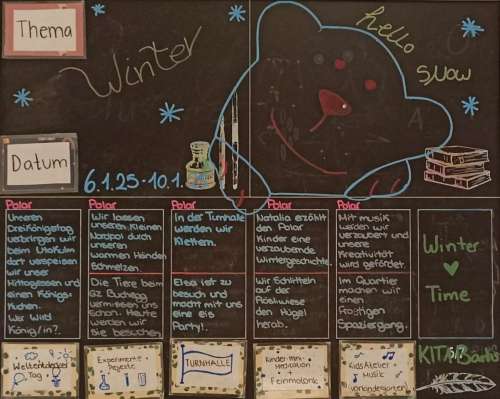 Thema
Winter
hello
snow
Datum
6.1.25-10.1.
Polar
Unseren
Dreikönigstag
verbringen wir
beim Utokulm
dort verspeisen
wir unser
Mittagessen und
einen Königs-
kuchen.
Wer wird
König/in?
Polar
Wir lassen
unseren kleinen
Nordpol durch
unseren
warmen Händen
schmelzen.
Die Tiere beim
GZ Buchegg
vermissen uns
schon. Heute
werden wir
sie besuchen
Polar
In der Turnhalle
werden wir
klettern.
Elsa ist zu
besuch und
macht mit uns
eine eis
Party!
Polar
Natalia erzählt
den Polar
Kinder eine
verzaubernde
Wintergeschichte.
Wir Schlitteln
auf der
Röslwiese
den Hügel
herab.
Polar
Mit musik
werden wir
verzaubert und
unsere
Kreativität
wird gefördert.
Im Quartier
machen wir
einen
Frostigen
Spaziergang.
Winter
Time
KITA Bärli
Weltentdecker
Tag
Experimente
Projekte
TURNHALLE
Kinder Mini-
Meditation
+
Feinmotorik
Kids Atelier +
Musik
Vorkindergarten